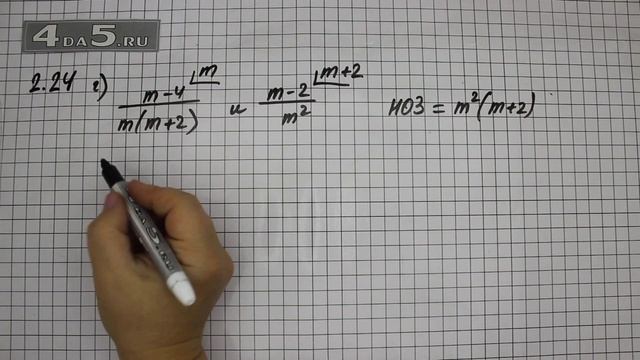 4DA5.RU
2.24 г) (m-4)/(m(m+2)) ⌊m и (m-2)/m² ⌊m+2 НОЗ = m²(m+2)
4DA5.RU